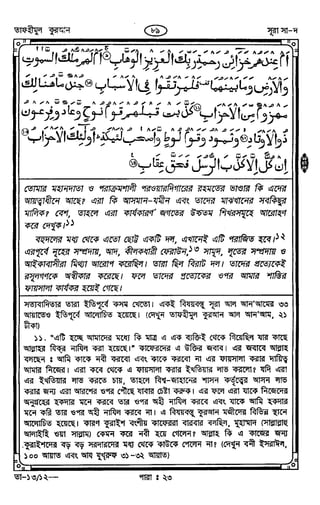 তাফহীমুল কুরআন
৮৯
সূরা সা-দ
أَمْ عِنْدَهُمْ خَزَائِنُ رَحْمَةِ رَبِّكَ الْعَزِيزِ الْوَهَّابِ ۝ أَمْ لَهُمْ مُلْكُ السَّمٰوٰتِ
وَالْأَرْضِ وَمَا بَيْنَهُمَا ۚ فَلْيَرْتَقُوا فِي الْأَسْبَابِ ۝ جُنْدٌ مَّا هُنَالِكَ
مَهْزُومٌ مِّنَ الْأَحْزَابِ ۝ كَذَّبَتْ قَبْلَهُمْ قَوْمُ نُوحٍ وَّعَادٌ وَّفِرْعَوْنُ
ذُو الْأَوْتَادِ ۝ وَثَمُودُ وَقَوْمُ لُوطٍ وَّأَصْحٰبُ لْـَٔيْكَةِ ۚ أُولٰئِكَ الْأَحْزَابُ ۝
إِنْ كُلٌّ إِلَّا كَذَّبَ الرُّسُلَ فَحَقَّ عِقَابِ ۝
তোমার মহানদাতা ও পরাক্রমশালী পরওয়ারদিগারের রহমতের ভাণ্ডার কি এদের
আয়ত্বাধীনে আছে? এরা কি আসমান-যমীন এবং তাদের মাঝখানের সবকিছুর
মালিক? বেশ, তাহলে এরা কার্যকারণ জগতের উচ্চতম শিখরসমূহে আরোহণ
করে দেখুক।১১
বহুদলের মধ্য থেকে এতো ছোট্ট একটি দল, এখানেই এটি পরাজিত হবে।১২
এরপূর্বে নূহের সম্প্রদায়, আদ, কীলকধারী ফেরাউন,১৩ সামূদ, লূতের সম্প্রদায় ও
আইকাবাসীরা মিথ্যা আরোপ করেছিল। তারা ছিল বিরাট দল। তাদের প্রত্যেকেই
রসূলগণকে অস্বীকার করেছে। ফলে তাদের প্রত্যেকের ওপর আমার শাস্তির
ফায়সালা কার্যকর হয়েই গেছে।
সত্যবাদিতার ছারা ইতিপূর্বে কসম খেতো। একই বিষয়বস্তু সূরা আল আন'আমের ৩৩
আয়াতেও ইতিপূর্বে আলোচিত হয়েছে। (দেখুন তাফহীমুল কুরআন আল আন'আম, ২১
টীকা)
১১. "এটি হচ্ছে আমাদের মধ্যে কি মাত্র এ এক ব্যক্তিই থেকে গিয়েছিল যার কাছে
আল্লাহর যিকির নাযিল করা হয়েছে।" কাফেরদের এ উক্তির জবাব। এর জবাবে আল্লাহ
বলছেন ঃ আমি কাকে নবী করবো এবং কাকে করবো না এর ফায়সালা করার দায়িত্ব
আমার নিজের। এরা কবে থেকে এ ফায়সালা করার ইখতিয়ার লাভ করলো? যদি এরা
এর ইখতিয়ার লাভ করতে চায়, তাহলে বিশ্ব-জাহানের শাসন কর্তৃত্বের আসন লাভ
করার জন্য এরা আরশের ওপর পৌঁছে যাবার চেষ্টা করুক। এর ফলে এরা যাকে নিজেদের
অনুগ্রহের হকদার মনে করবে তার ওপর অহী নাযিল করবে এবং যাকে আমি হকদার
মনে করি তার ওপর অহী নাযিল করবে না। এ বিষয়বস্তু কুরআন মজীদের বিভিন্ন স্থানে
আলোচিত হয়েছে। কারণ কুরাইশ বংশীয় কাফেররা বারবার বলছিল, মুহাম্মাদ (সাল্লাল্লাহু
আলাইহি ওয়া সাল্লাম) কেমন করে নবী হয়ে গেলেন? আল্লাহ কি এ কাজের জন্য
কুরাইশদের বড় বড় সরদারদের মধ্য থেকে কাউকে পেলেন না? (দেখুন বনী ইসরাঈল,
১০০ আয়াত এবং আয যুখরুফ ৩১-৩২ আয়াত)
তা-১৩/১২—
পারা ঃ ২৩